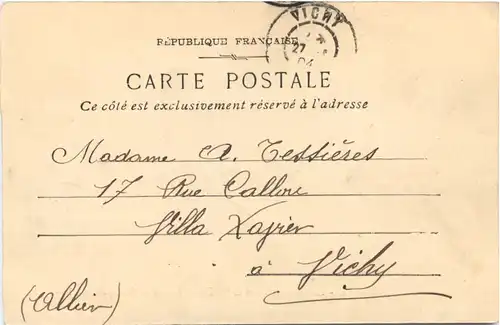 VICHY
27
04
RÉPUBLIQUE FRANÇAISE
CARTE POSTALE
Ce côté est exclusivement réservé à l'adresse
Madame A. Tessières
17 Rue Callou
Villa Xavier
à Vichy
(Allier)